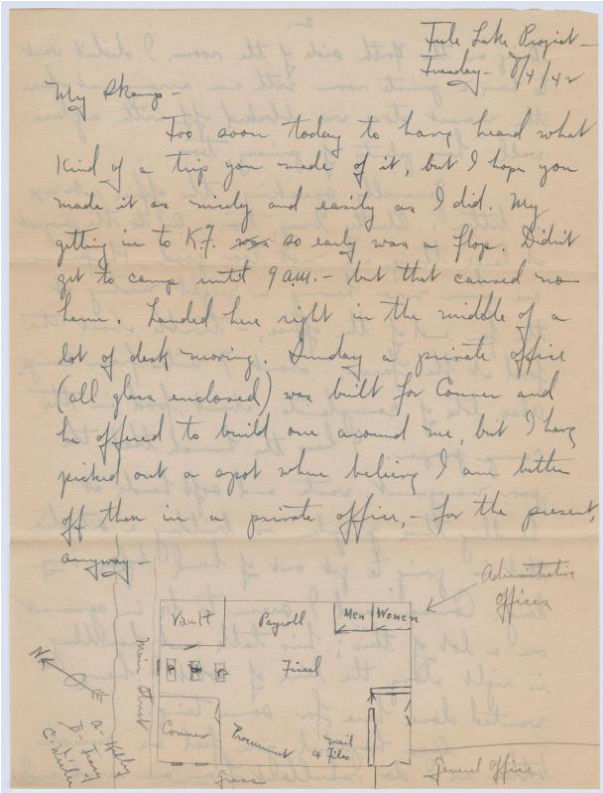 Tule Lake Project -
Tuesday - 8/4/42
My Skamp -
Too soon today to have heard what
kind of a trip you made of it, but I hope you
made it as nicely and easily as I did. My
getting in to K.F. was so early was a flop. Didn't
get to camp until 9 a.m. - but that caused no
harm. Landed here right in the middle of a
lot of desk moving. Sunday a private office
(all glass enclosed) was built for Conner and
he offered to build one around me, but I have
picked out a spot where believing I am better
off than in a private office, - for the present,
anyway -
Administrative
offices
Vault
Payroll
Men
Women
Main Street
Fiscal
N
Conner
Procurement
Mail
& Files
Grace
General Office